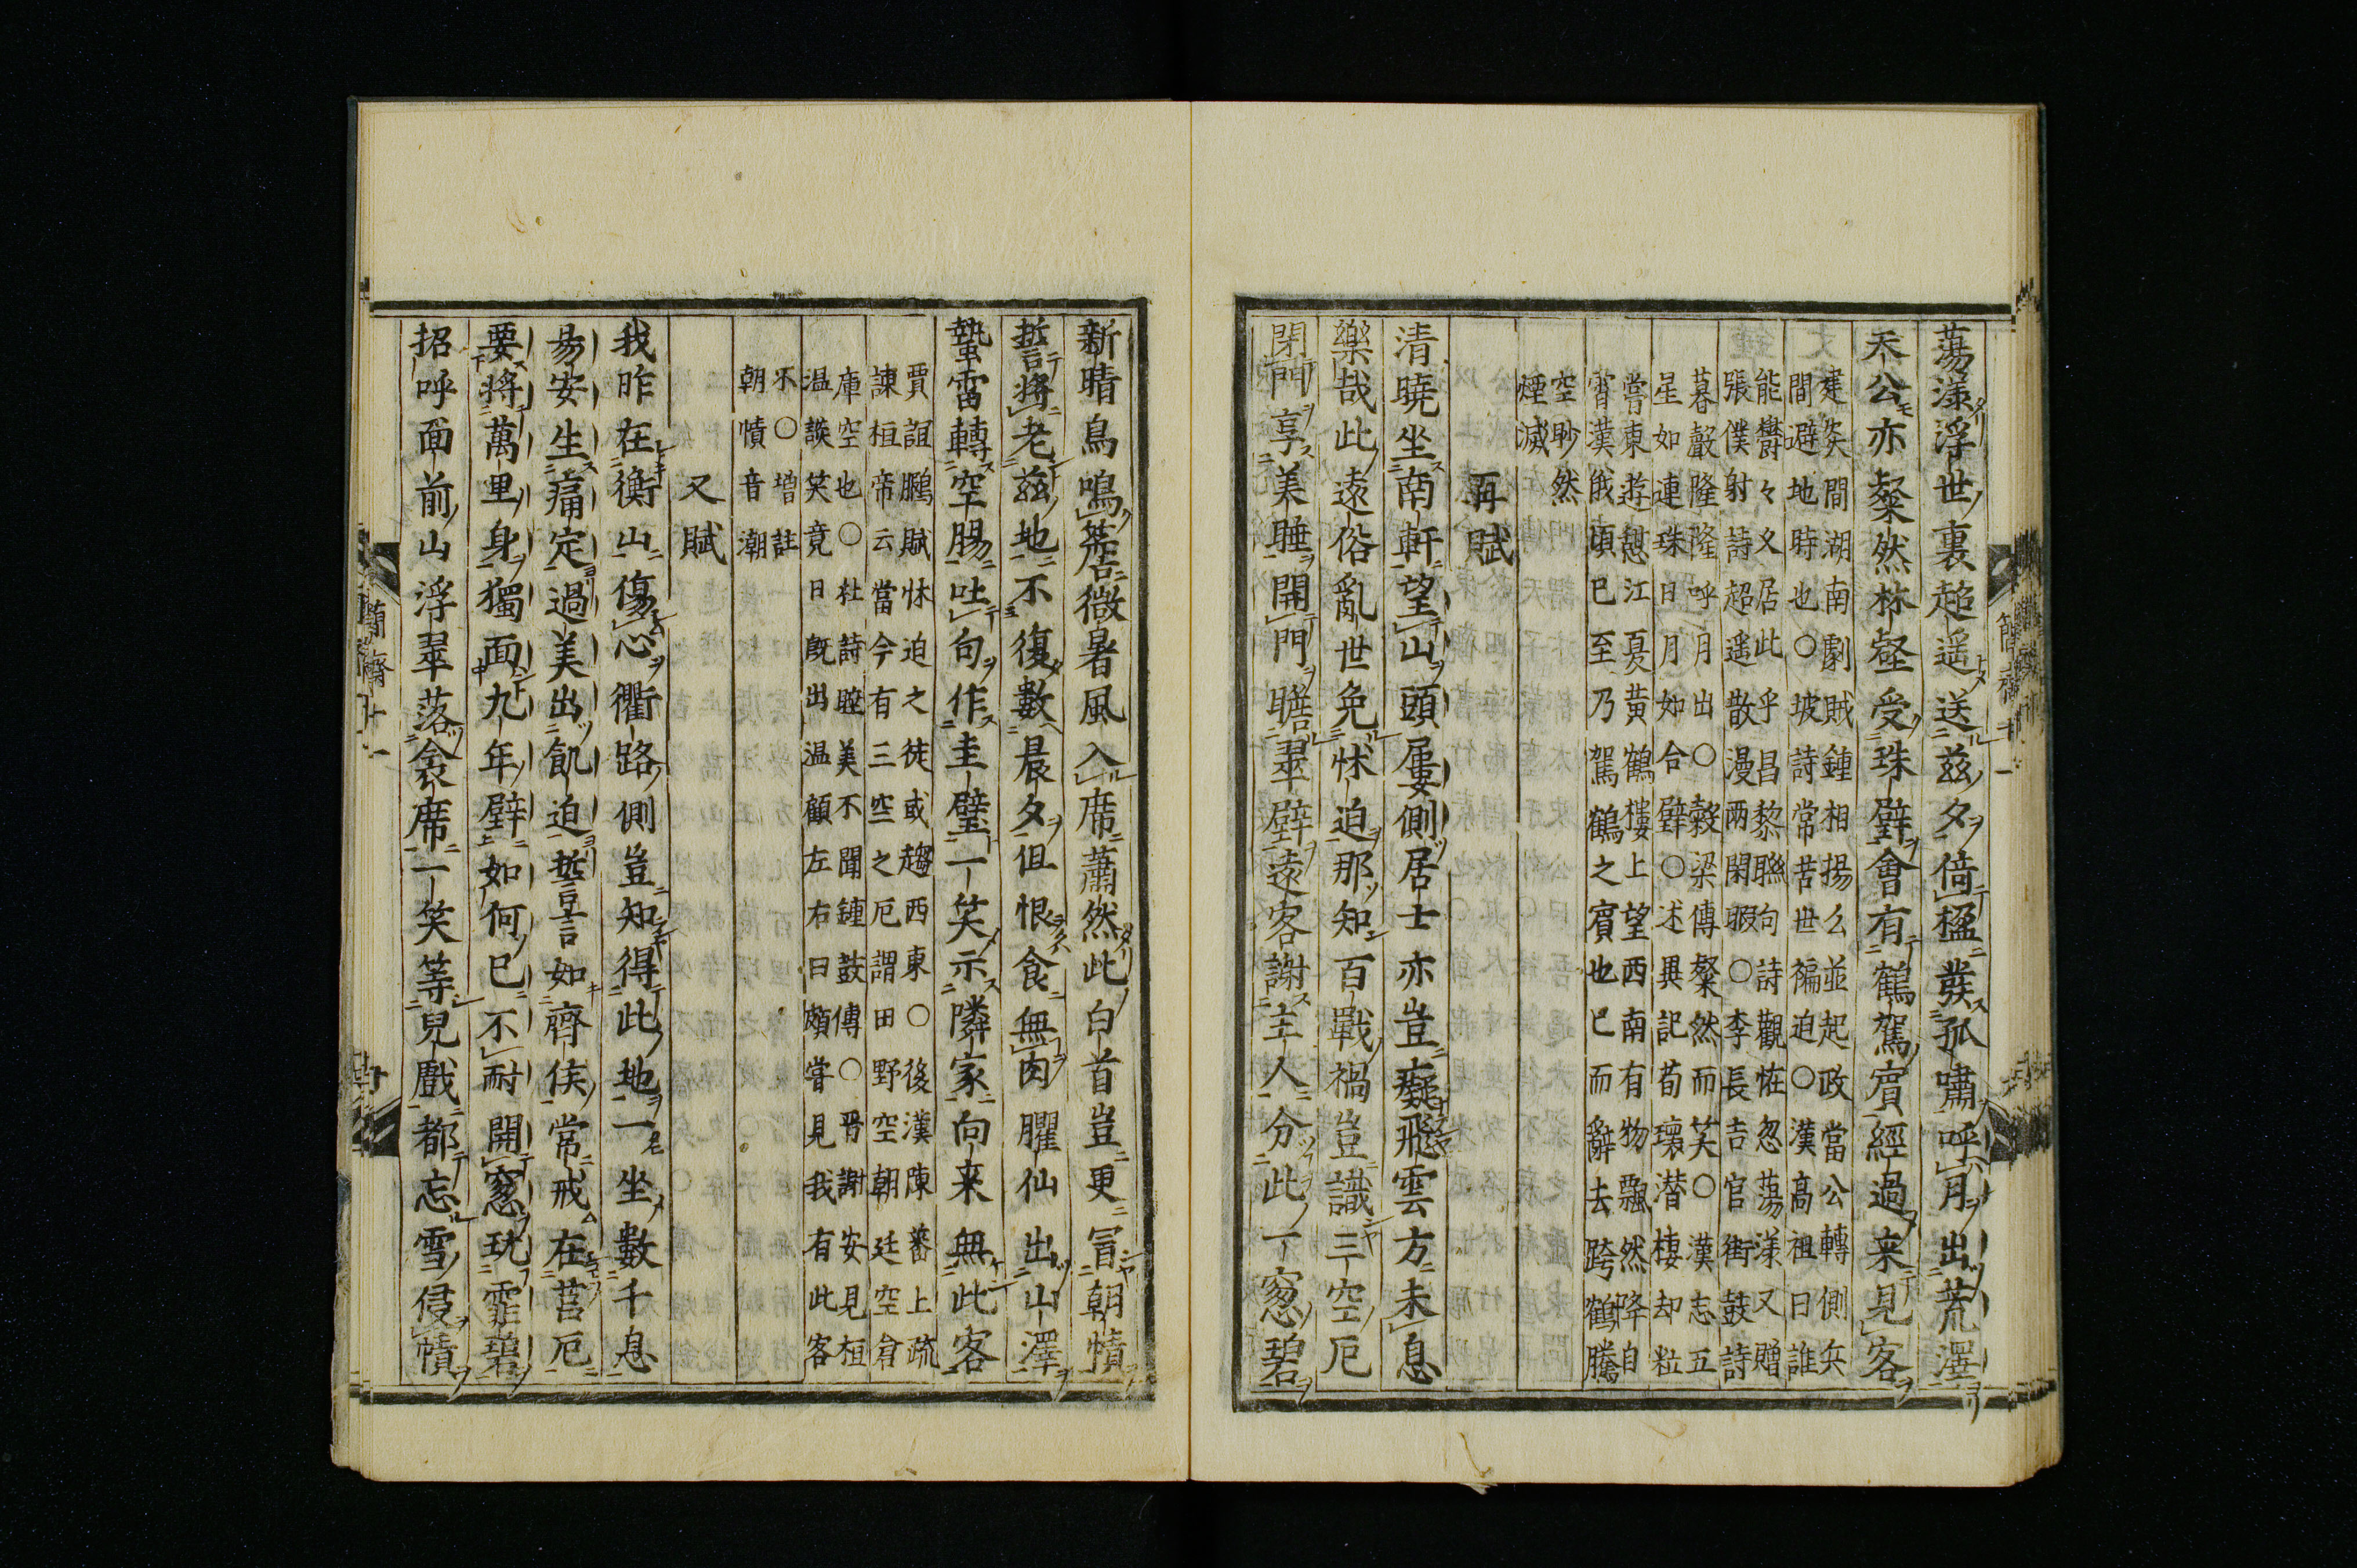 蕩漾浮世裏超遥送茲夕倚楹發孤嘯呼月出荒澤
天公亦粲然林壑受珠璧會有鶴駕賓經過来見客
建炎間湖南劇賊鍾相揚么並起政當公轉側兵
間避地時也○坡詩常苦世褊迫○漢高祖曰誰
能欝々久居此乎昌黎聯句詩觀怪忽蕩漾又贈
張僕射詩超遥散漫兩閑暇○李長吉官街鼓詩
暮聲隆隆呼月出○穀梁傳粲然而笑○漢志五
星如連珠日月如合璧○述異記荀瓌潜棲却粒
嘗東遊憇江夏黄鶴樓上望西南有物飄然降自
霄漢俄頃已至乃駕鶴之賓也已而辭去跨鶴騰
空眇然
煙滅
再賦
清曉坐南軒望山頭屢側居士亦豈癡飛雲方未息
樂哉此遠俗亂世免怵迫那知百戰禍豈識三空厄
閉門享美睡開門瞻翠壁遠客謝主人分此一窓碧
簡齋十一
新晴鳥鳴簷微暑風入席蕭然此白首豈更冒朝幘
誓將老茲地不復數晨夕但恨食無肉臞仙出山澤
蟄雷轉空腸吐句作圭璧一笑示隣家向来無此客
賈誼鵩賦怵迫之徒或趨西東○後漢陳蕃上疏
諫桓帝云當今有三空之厄謂田野空朝廷空倉
庫空也○杜詩睡美不聞鍾鼓傳○晋謝安見桓
温談笑竟日既出温顧左右曰頗嘗見我有此客
不○増註
朝幘音潮
又賦
我昨在衡山傷心衢路側豈知得此地一坐數千息
易安生痛定過美出飢迫誓言如齊侯常戒在莒厄
要將萬里身獨面九年壁如何已不耐開窓玩霏碧
招呼面前山浮翠落衾席一笑等兒戲都忘雪侵幘
簡齋十一